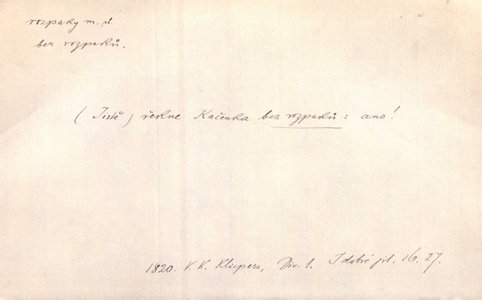 rozpaky m. pl
bez rozpaků.
(Jistě) řekne Kačenka bez rozpaků: ano!
1820. V. K. Klicpera, Div. 1. I dobré jit. 16. 27.